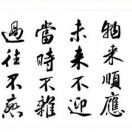 物来順應
未来不迎
當時不雜
過往不戀